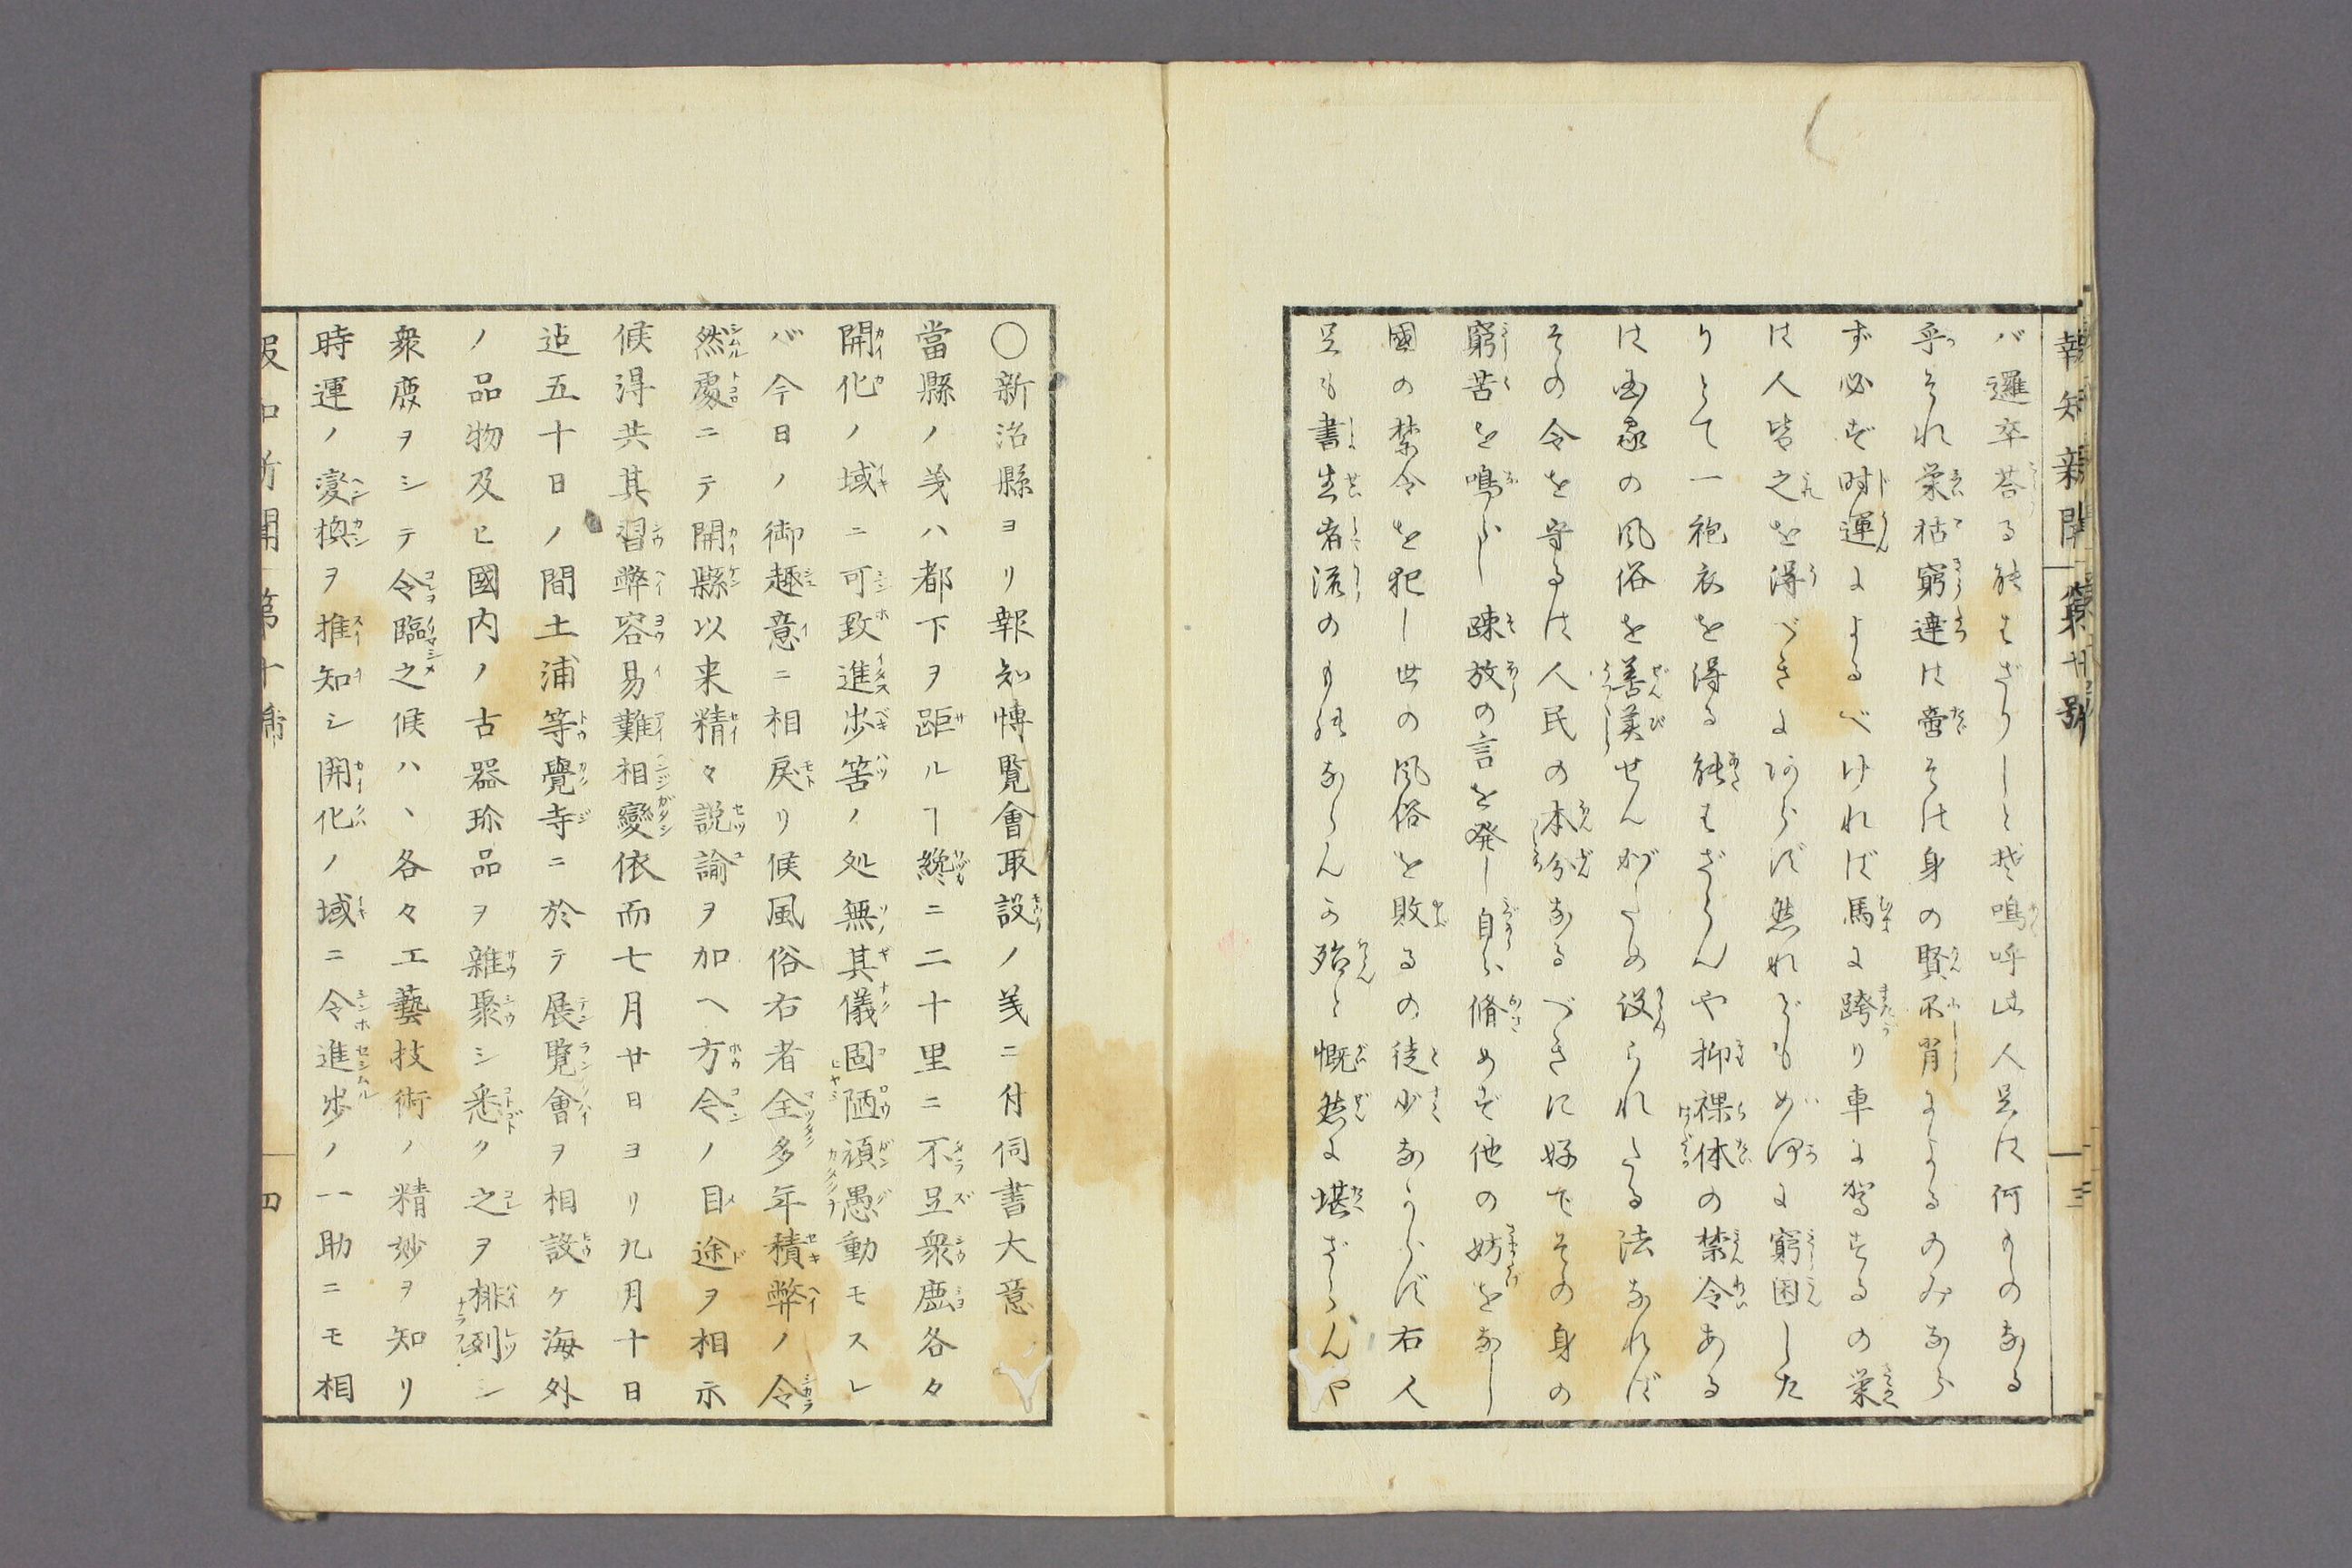 報知新聞 第十號 三
バ邏卒荅る能はざりしとぞ嗚呼此人是は何ものなる
乎それ栄枯窮達は啻その身の賢不肖によるのみなら
ず必ず時運によるべければ馬に跨り車に駕するの栄
は人皆之を得べきにあらず然れどもめ伊に窮困した
りとて一袍衣を得る能はざらんや抑裸体の禁令ある
は國の風俗を善美せんがための設られたる法なれば
その令を守るは人民の本分なるべきに好でその身の
窮苦を鳴らし疎放の言を発し自ら脩めず他の妨をなし
國の禁令を犯し世の風俗を敗るの徒少なからず右人
是も書生者流のものならんか殆と慨然に堪ざらんや
〇新治縣ヨリ報知博覧會取設ノ義ニ付伺書大意
當縣ノ義ハ都下ヲ距ルヿ纔ニ二十里ニ不足衆庶各々
開化ノ域ニ可致進歩筈ノ処無其儀固陋頑愚動モスレ
バ今日ノ御趣意ニ相戻リ候風俗右者全多年積弊ノ令
然處ニテ開縣以来精々説諭ヲ加ヘ方今ノ目途ヲ相示
候得共其習弊容易難相變依而七月廿日ヨリ九月十日
迠五十日ノ間土浦等覺寺ニ於テ展覧會ヲ相設ケ海外
ノ品物及ヒ國内ノ古器珎品ヲ雜聚シ悉ク之ヲ排列シ
衆庶ヲシテ令臨之候ハヽ各々工藝技術ノ精妙ヲ知リ
時運ノ變換ヲ推知シ開化ノ域ニ令進歩ノ一助ニモ相
報知新聞 第十號 四